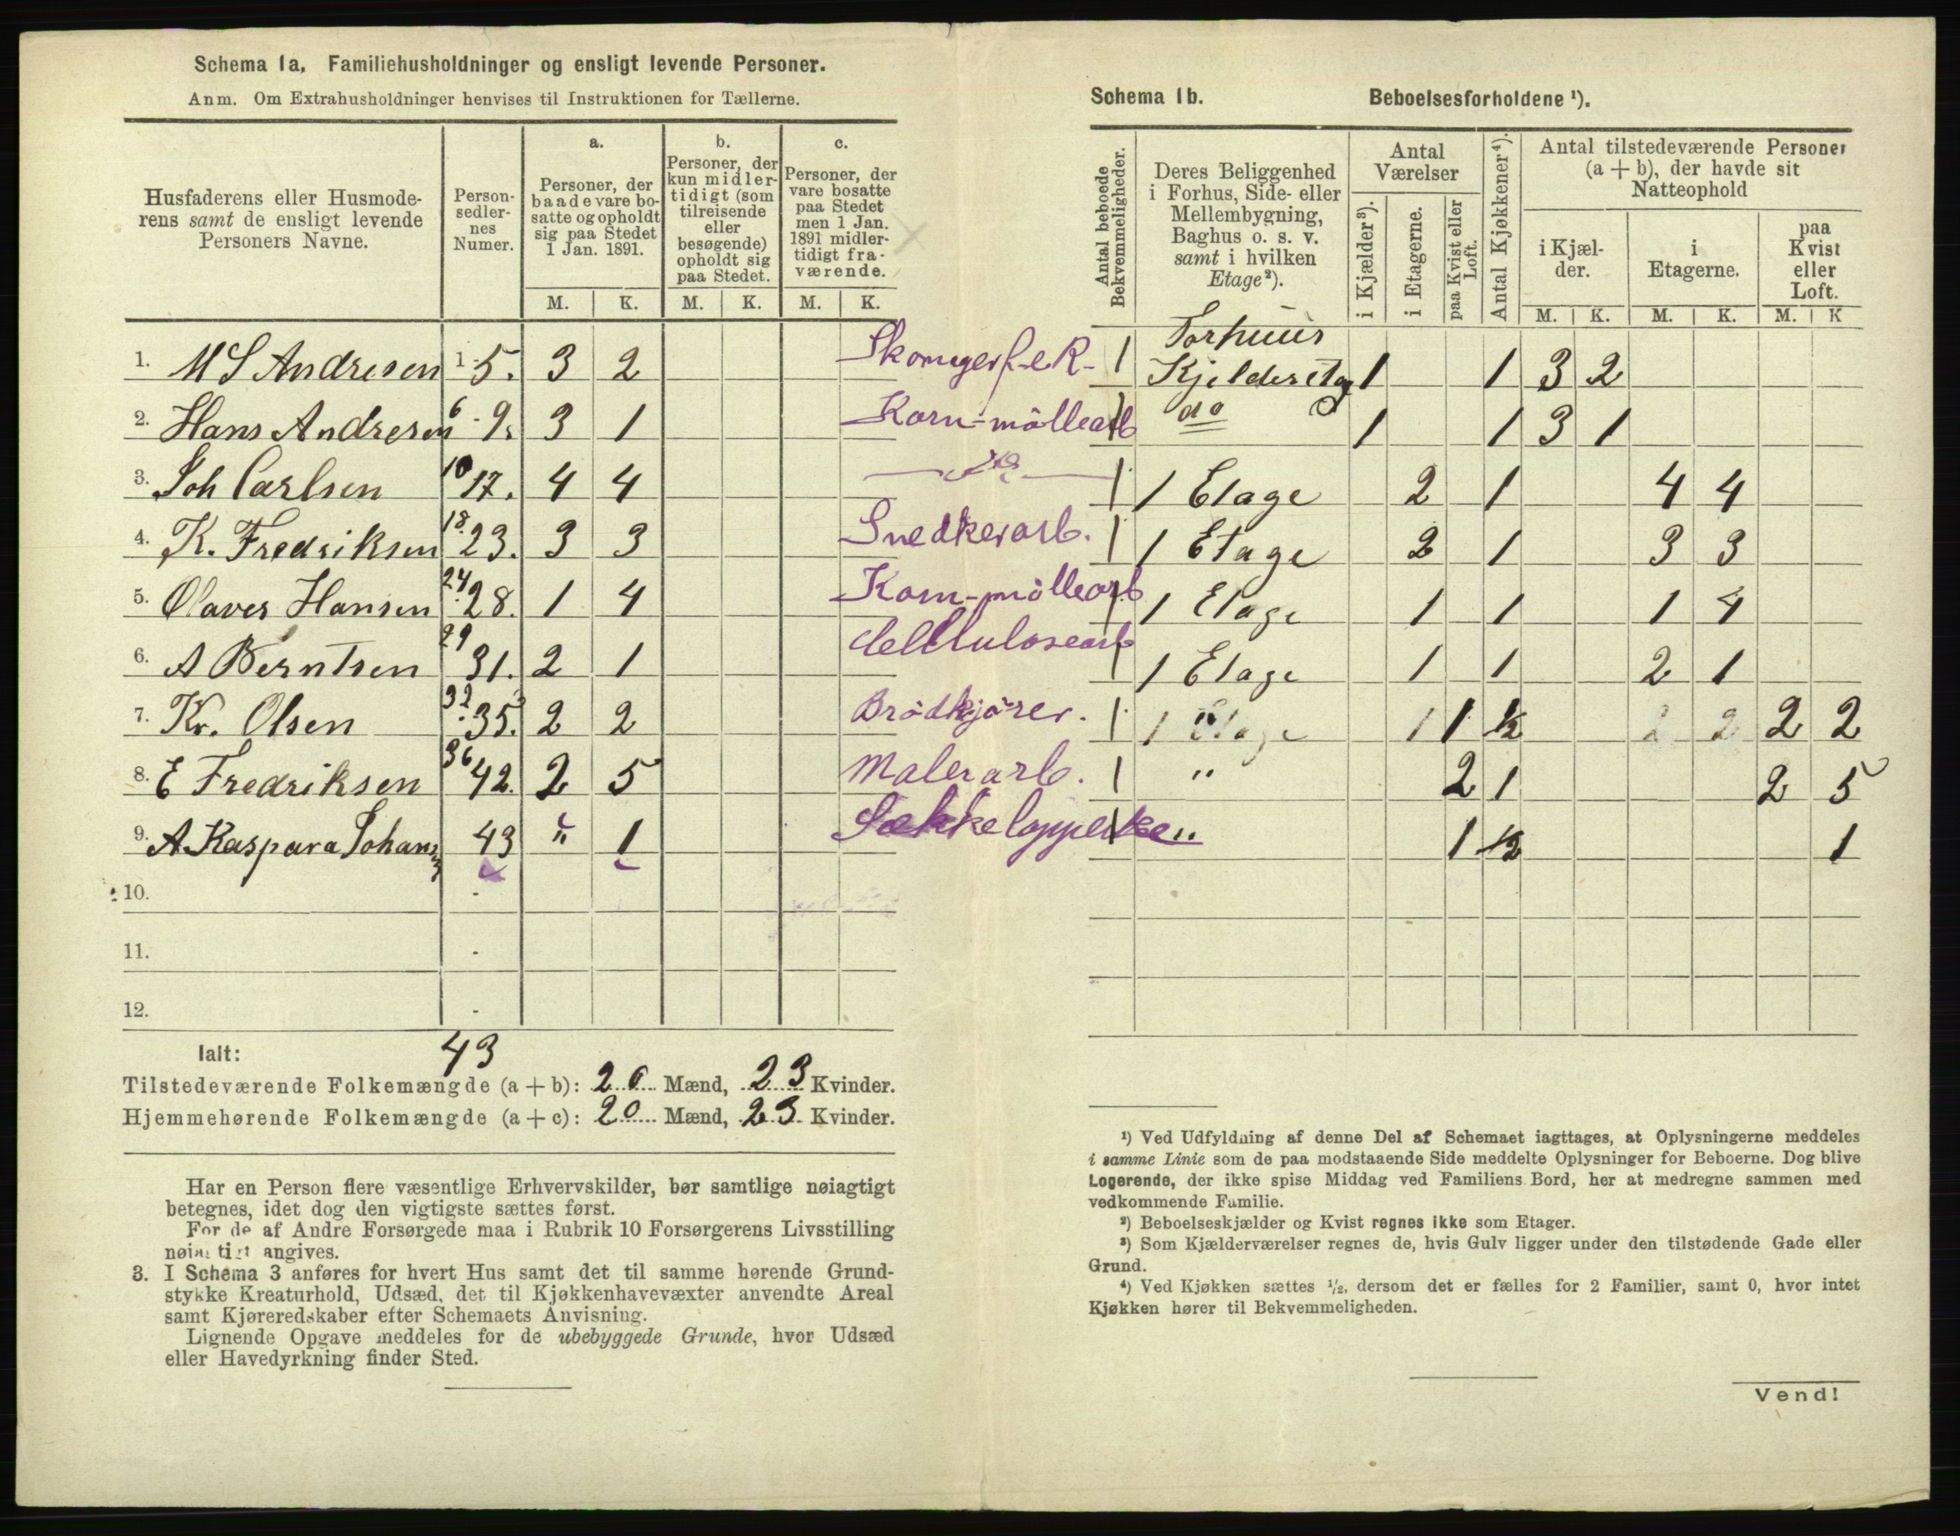 Schema 1a. Familiehusholdninger og ensligt levende Personer.
Anm. Om Extrahusholdninger henvises til Instruktionen for Tællerne.
Husfaderens eller Husmoderens samt de ensligt levende Personers Navne.
Personsedlernes Numer.
a. Personer, der baade vare bosatte og opholdt sig paa Stedet 1 Jan. 1891.
b. Personer, der kun midlertidigt (som tilreisende eller besøgende) opholdt sig paa Stedet.
c. Personer, der vare bosatte paa Stedet men 1 Jan. 1891 midlertidigt fraværende.
M. K. M. K. M. K.
1. M S Andresen 1-5. 3 2
2. Hans Andresen 6-9. 3 1 Korn-mölle arb
3. Joh Carlsen 10 17. 4 4 do
4. K. Fredriksen 18. 23. 3 3 Snedkerarb.
5. Olaves Hansen 24 28. 1 4 Korn-möllearb
6. A Berntsen 29 31. 2 1 Cellulosearb
7. Kr. Olsen 32 35. 2 2 Brödkjörer.
8. E Fredriksen 36 42. 2 5 Malerarb.
9. A Kaspara Johans 43 " 1
10.
11.
12.
Ialt: 43
Tilstedeværende Folkemængde (a + b): 20 Mænd, 23 Kvinder.
Hjemmehørende Folkemængde (a + c): 20 Mænd, 23 Kvinder.
Har en Person flere væsentlige Erhvervskilder, bør samtlige nøiagtigt
betegnes, idet dog den vigtigste sættes først.
For de af Andre Forsørgede maa i Rubrik 10 Forsørgerens Livsstilling
nøiagtigt angives.
3. I Schema 3 anføres for hvert Hus samt det til samme hørende Grund-
stykke Kreaturhold, Udsæd, det til Kjøkkenhavevæxter anvendte Areal
samt Kjøreredskaber efter Schemaets Anvisning.
Lignende Opgave meddeles for de ubebyggede Grunde, hvor Udsæd
eller Havedyrkning finder Sted.
Schema 1b. Beboelsesforholdene ¹).
Antal beboede Bekvemmeligheder.
Deres Beliggenhed i Forhus, Side- eller Mellembygning, Baghus o. s. v. samt i hvilken Etage²).
Antal Værelser
i Kjælder³).
i Etagerne.
paa Kvist eller Loft.
Antal Kjøkkener⁴).
Antal tilstedeværende Personer (a + b), der havde sit Natteophold
i Kjælder.
i Etagerne.
paa Kvist eller Loft.
M. K. M. K. M. K
1 Forhuus Kjelderetag 1 1 3 2
1 do 1 1 3 1
1 1 Etage 2 1 4 4
1 1 Etage 2 1 3 3
1 1 Etage 1 1 1 4
1 1 Etage 1 1 2 1
1 1 Etage " 1 1 ½ 2 2 2 2
1 " 2 1 2 5
1 " 1 ½ 1
¹) Ved Udfyldning af denne Del af Schemaet iagttages, at Oplysningerne meddeles
i samme Linie som de paa modstaaende Side meddelte Oplysninger for Beboerne. Dog blive
Logerende, der ikke spise Middag ved Familiens Bord, her at medregne sammen med
vedkommende Familie.
²) Beboelseskjælder og Kvist regnes ikke som Etager.
³) Som Kjælderværelser regnes de, hvis Gulv ligger under den tilstødende Gade eller
Grund.
⁴) Ved Kjøkken sættes ½, dersom det er fælles for 2 Familier, samt 0, hvor intet
Kjøkken hører til Bekvemmeligheden.
Vend!